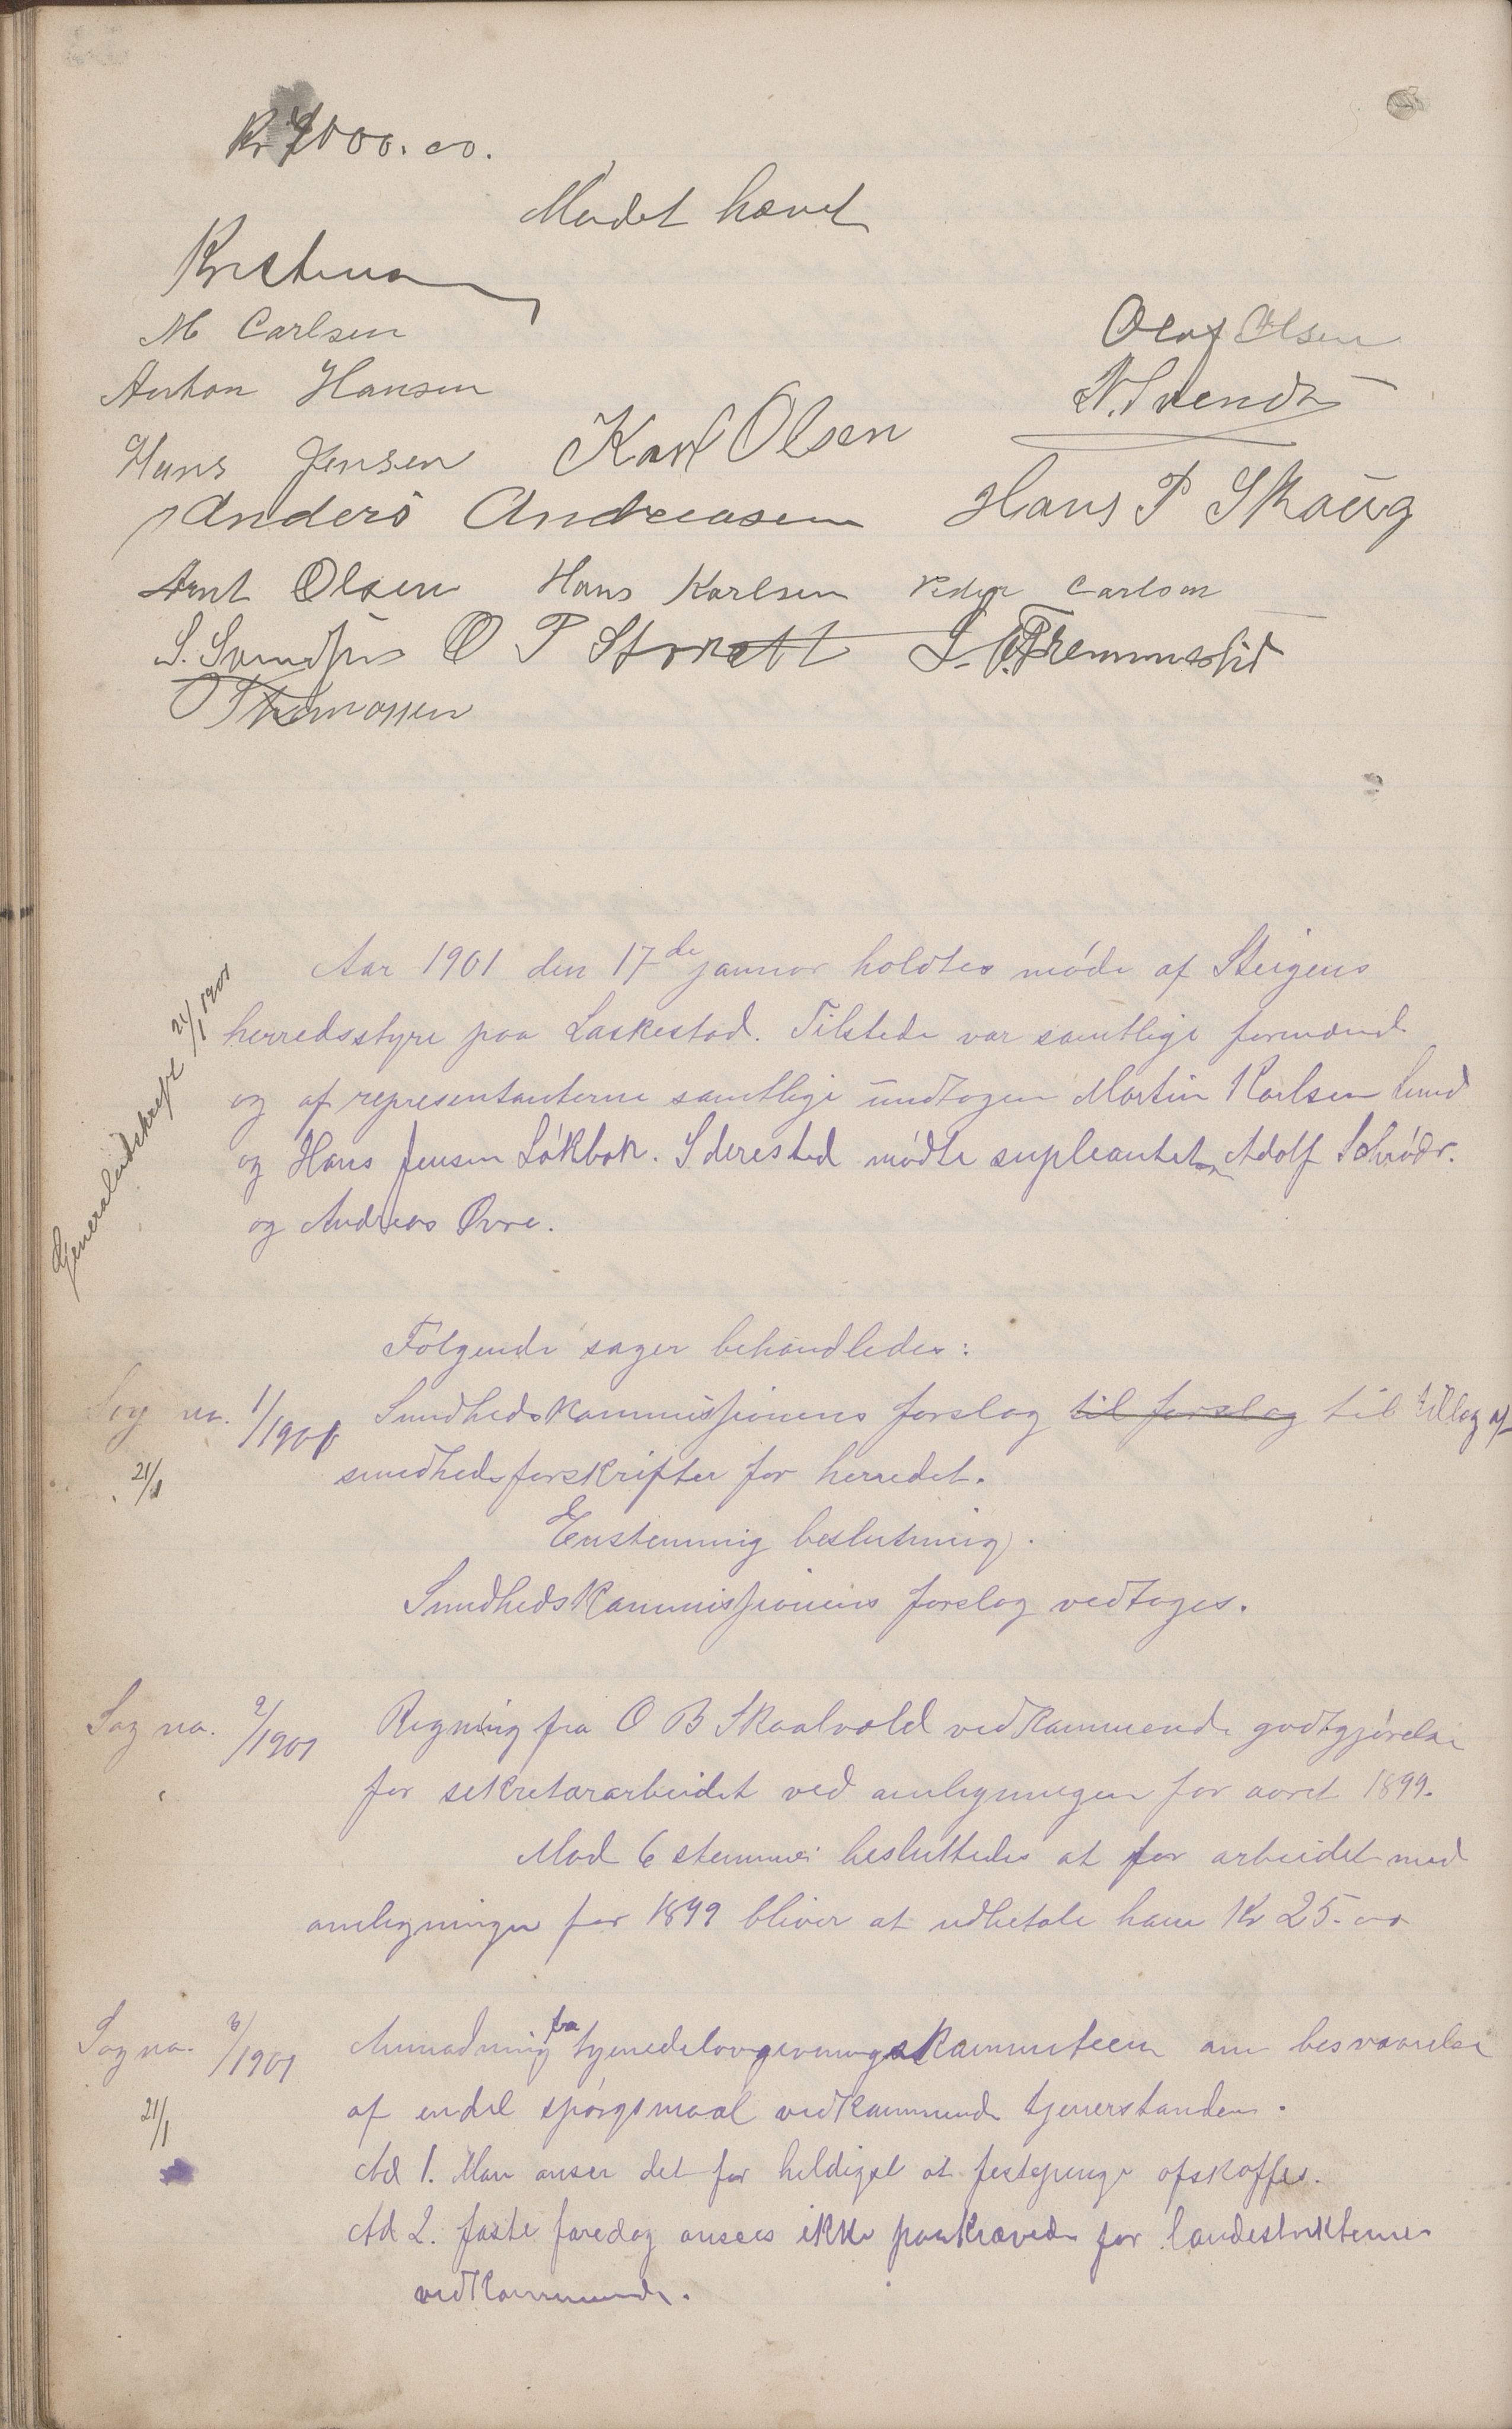 Kr 7000.00.
Mødet hævet
Kristensen
M Carlsen
Olaf Olsen
Anton Hansen
N. Svendsen
Hans Jensen Karl Olsen
Anders Andreasen Hans P Skaug
Arnt Olsen Hans Karlsen Peder Carlsen
S. Svendsen O P
O Thomassen
Aar 1901 den 17de januar holdtes møde af Steigens
herredsstyre paa Laskestad. Tilstede var samtlige formænd
og af representanterne samtlige undtagen Martin Karlsen Lund
og Hans Jensen Løkbak. I deres sted mødte supleanterne Adolf Schrøder.
og Andreas Øvre.
Generaludskrift 21/1 1901
Følgende sager behandledes:
Sag no. 1/1901 Sundhedskommissionens forslag til forslag til tillæg af
21/1 sundhedsforskrifter for herredet.
Enstemmig beslutning.
Sundhedskommissionens forslag vedtages.
Sag no. 2/1901 Regning fra O B Skaalvold vedkommende godtgjørelse
for sekretærarbeidet ved omligningen for aaret 1899.
Mod 6 stemmer besluttedes at for arbeidet med
omligningen for 1899 bliver at udbetale ham Kr 25.00
Sag no. 3/1901 Anmodning fra tyendelovgivningskommiteen om besvarelse
21/1 af endel spørgsmaal vedkommende tjenerstanden.
Ad 1. Man anser det for heldigst at festepenge afskaffes.
Ad 2. faste faredag ansees ikke paakrævede for landdistrikternes
vedkommende.